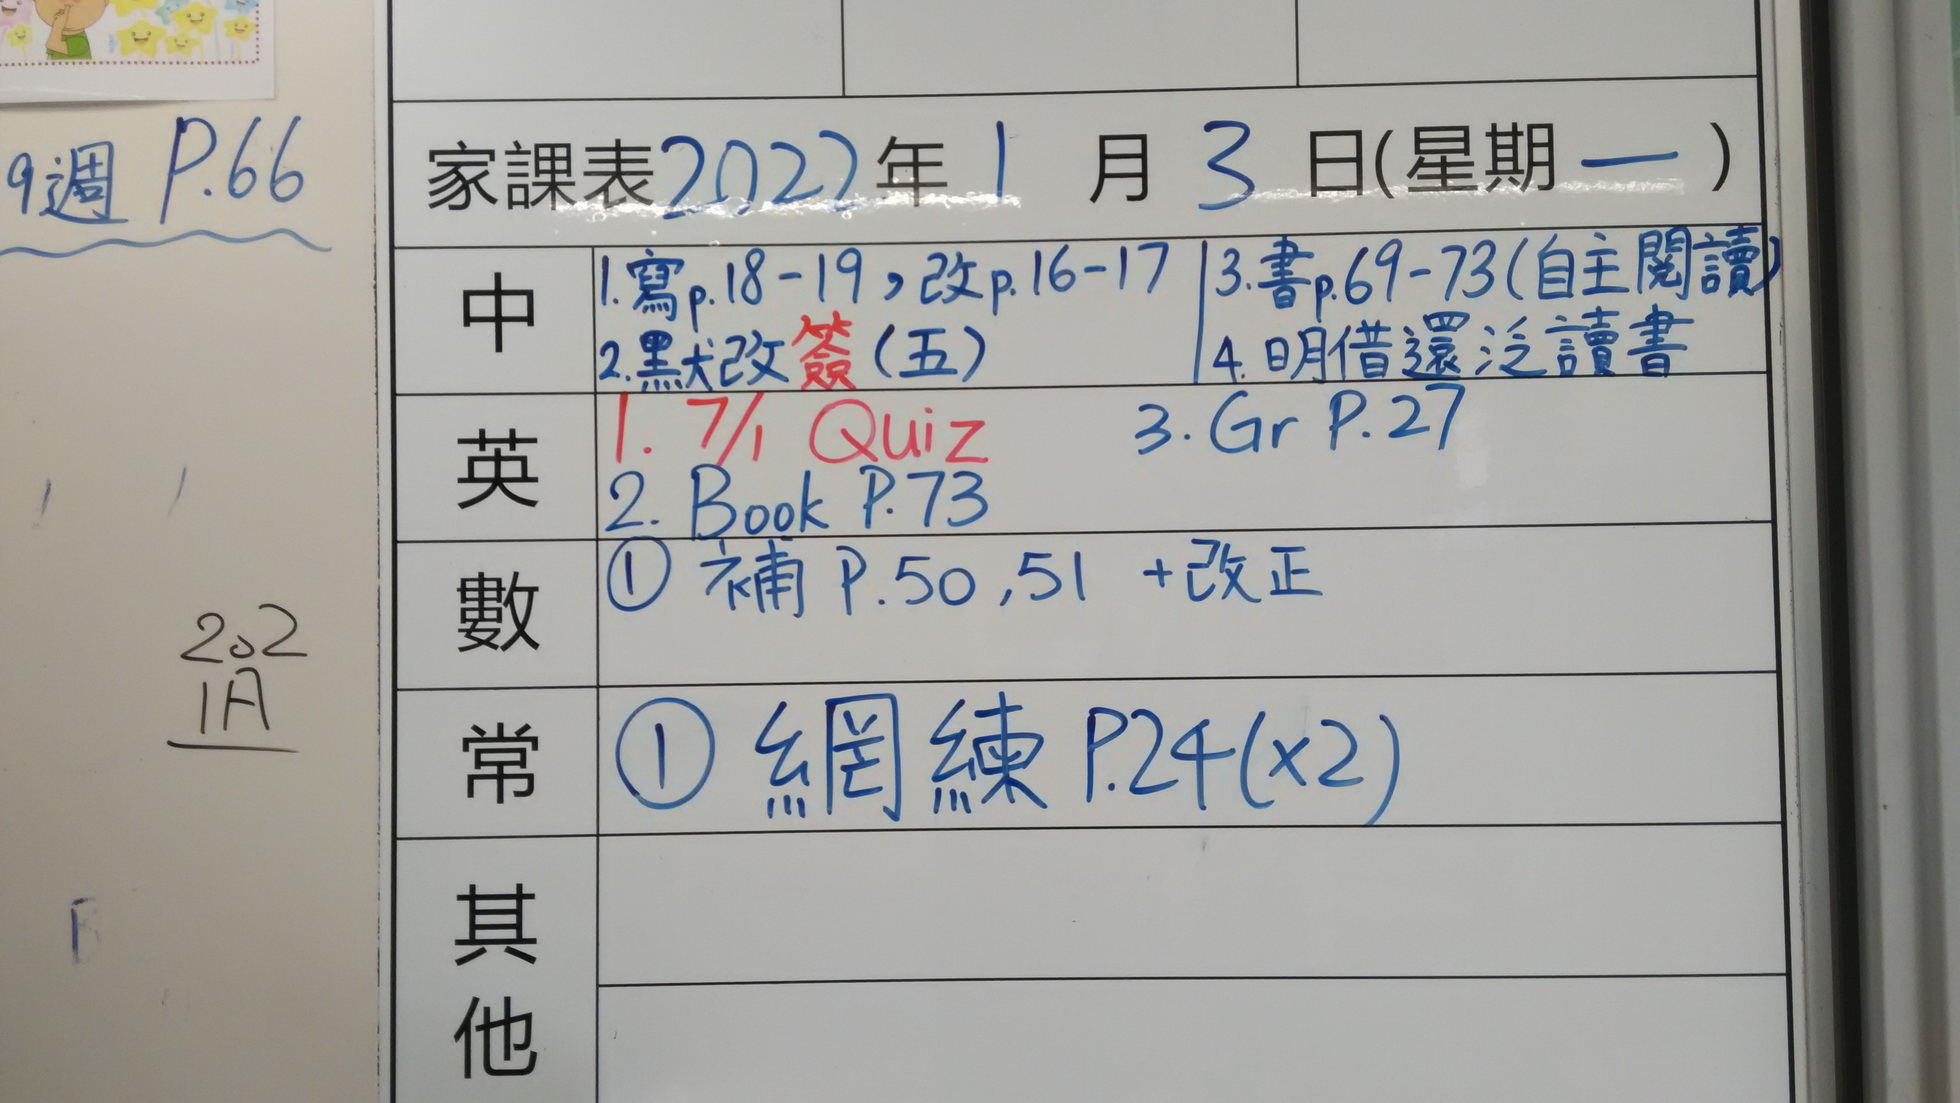 9週 P.66
202
1A
家課表2022年1月3日(星期一)
中
1.寫p.18-19，改p.16-17
2.默改簽(五)
3.書p.69-73(自主閱讀)
4.明借還泛讀書
英
1. 7/1 Quiz
2. Book P.73
3. Gr P.27
數
① 補 P.50,51 +改正
常
① 網練 P.24(x2)
其他